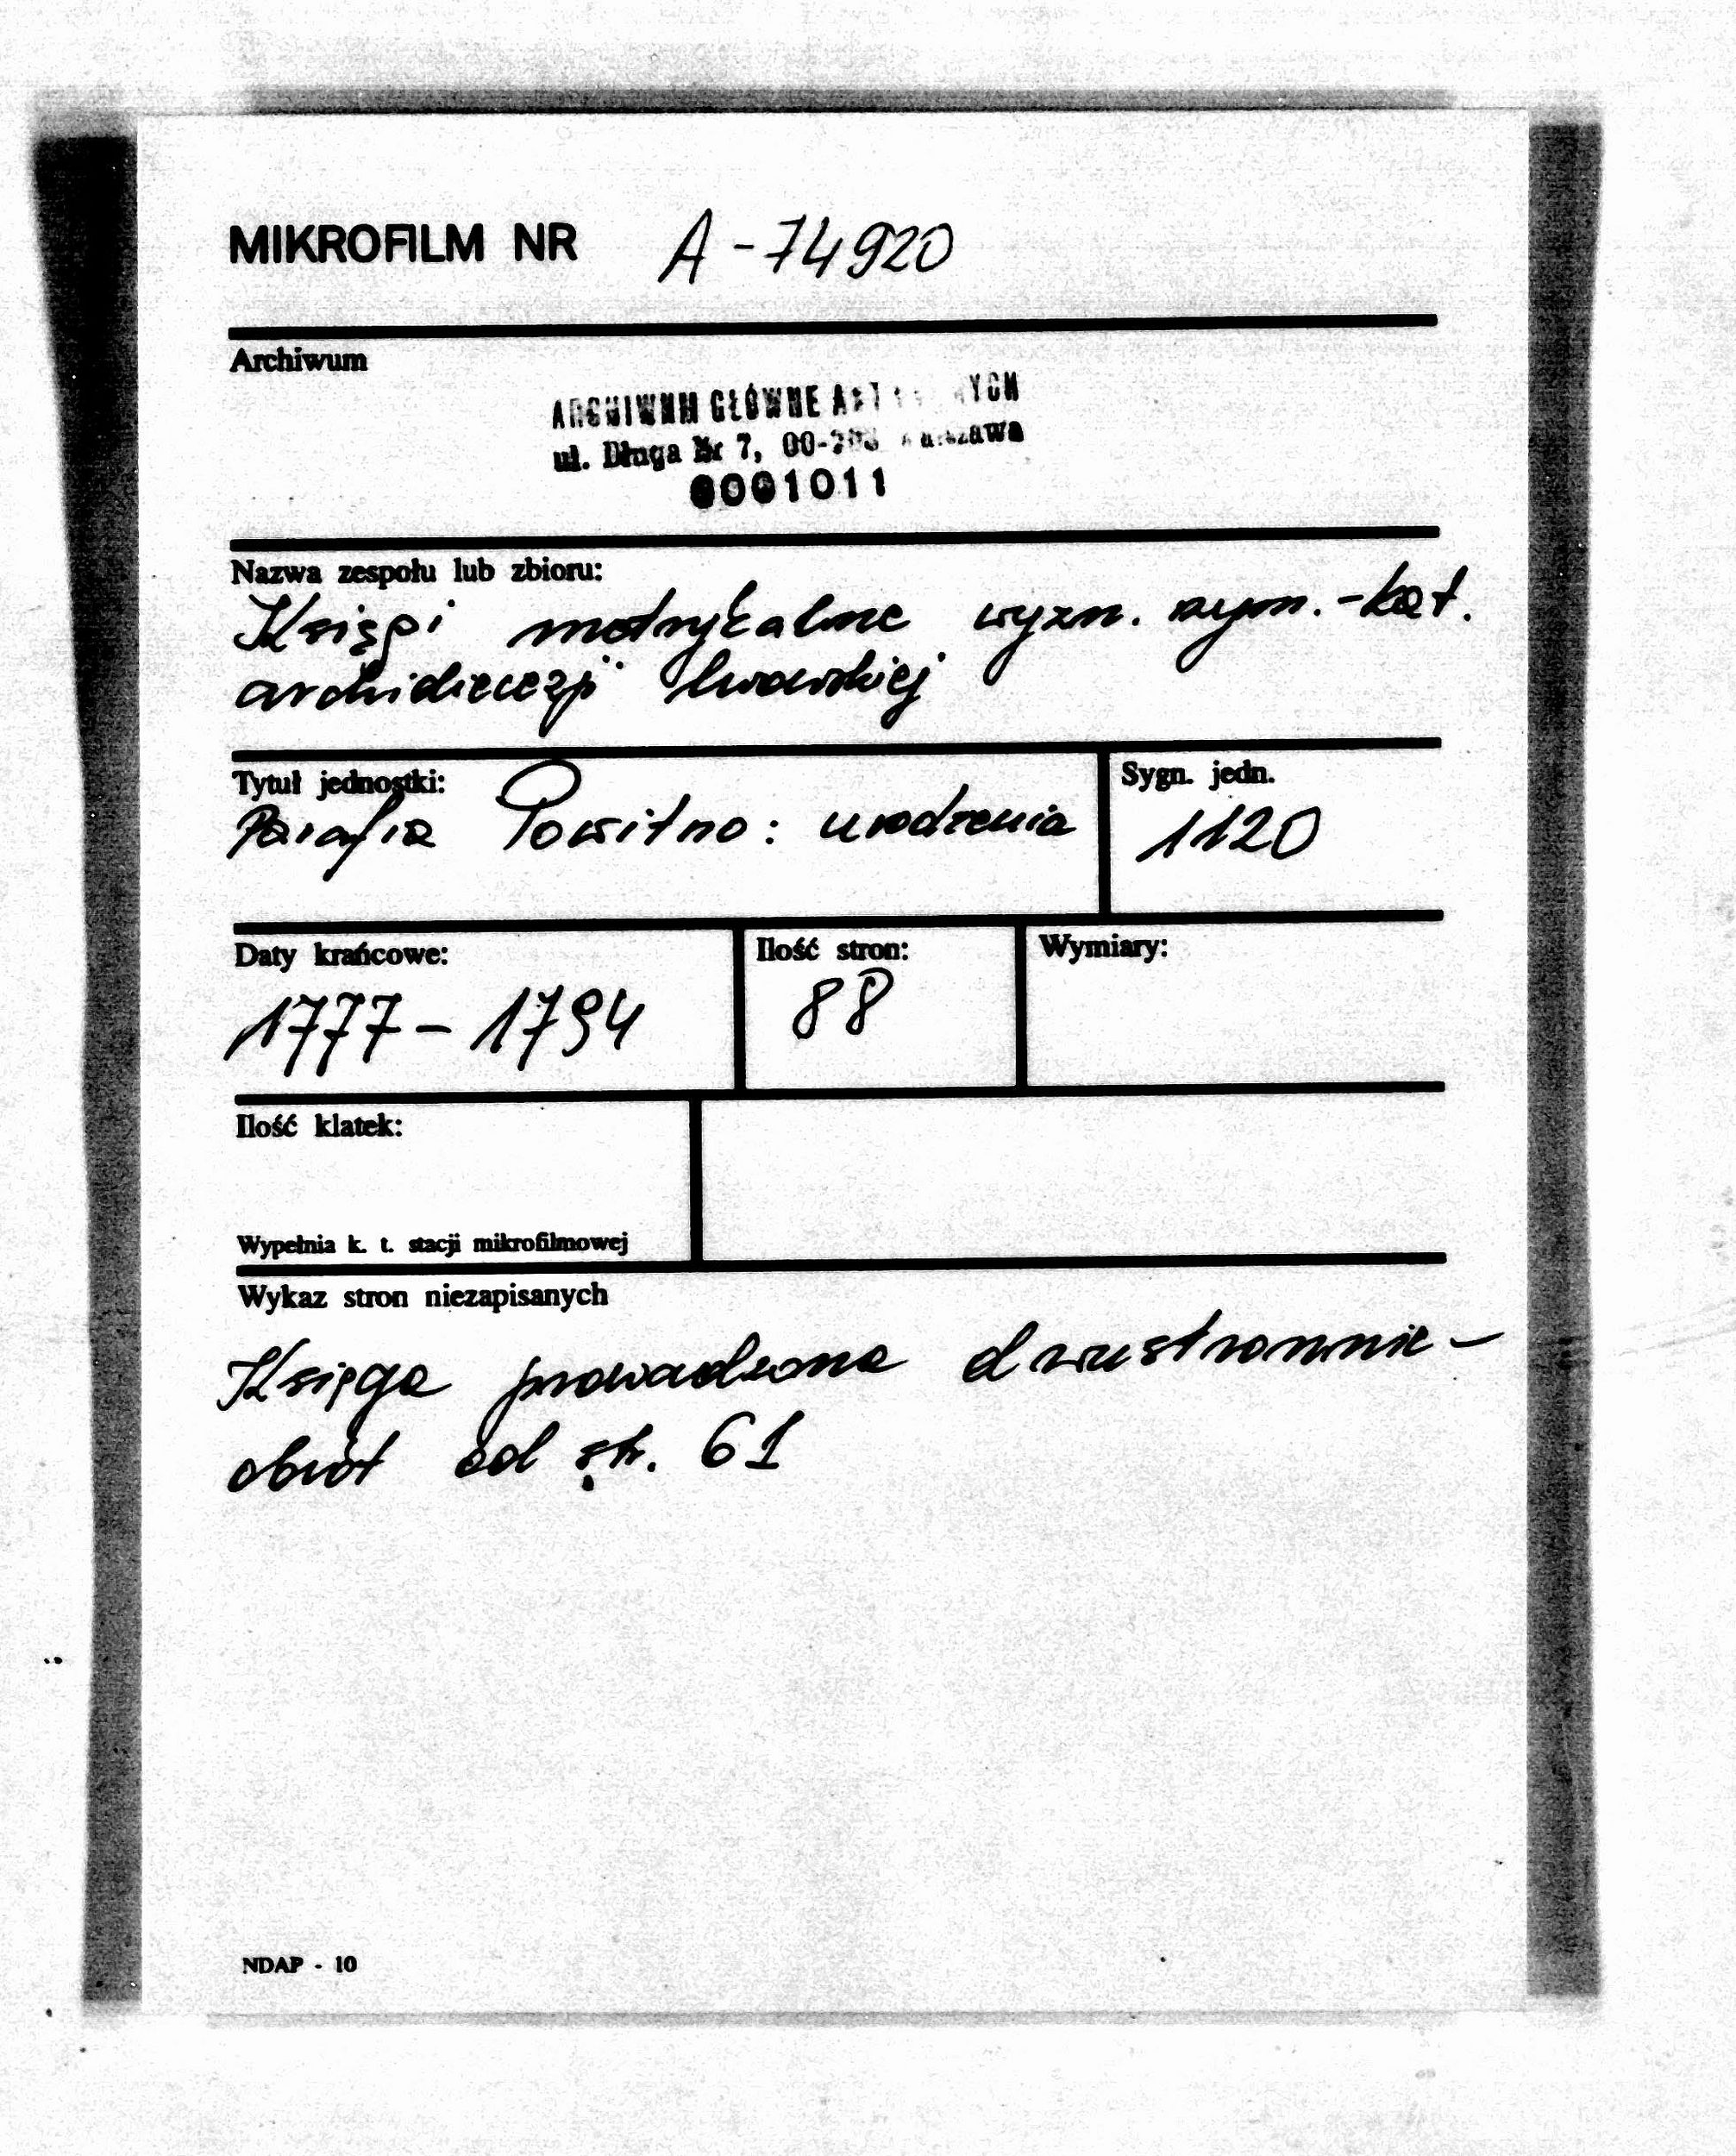 MIKROFILM NR A-74920
Archiwum
ARCHIWUM GŁÓWNE
ul. Długa Nr 7, Warszawa
0001011
Nazwa zespołu lub zbioru:
Księgi metrykalne wyzn. rzym.-kat.
archidiecezji lwowskiej
Tytuł jednostki:
Parafia Powitno: urodzenia
Sygn. jedn.
1120
Daty krańcowe:
1777-1794
Ilość stron:
88
Wymiary:
Ilość klatek:
Wypełnia k. t. stacji mikrofilmowej
Wykaz stron niezapisanych
Księga prowadzona dwustronnie -
obrót od str. 61
NDAP - 10